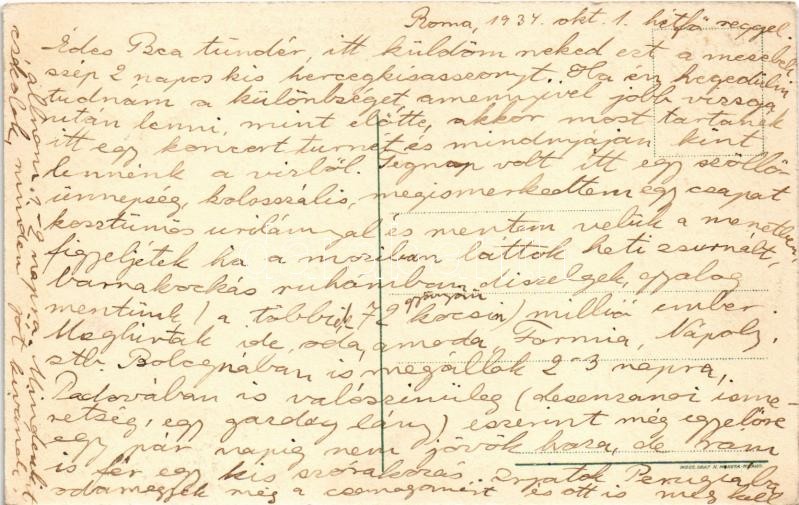 Roma, 1934. okt. 1. hétfő reggel.
Édes Bea tündér, itt küldöm neked ezt a mesebeli
szép 2 napos kis hercegkisasszonyt. Ha én hegedülni
tudnám a különbséget, amennyivel jobb vizsga
után lenni, mint előtte, akkor most tartanék
itt egy koncert turnét és mindnyájan kint
lennénk a vízből. Tegnap volt itt egy szőllő
ünnepség, kolosszális, megismerkedtem egy csapat
kosztümös urilánnyal és mentem velük a menetben,
figyeljétek ha a moziban láttok heti zsurnált,
barnakockás ruhámban díszelgek, gyalog
mentünk, a többiek 72 gyönyörű kocsin, millió ember.
Meghívtak ide, oda, amoda Formia, Nápoly,
stb. Bolognában is megállok 2-3 napra,
Padovában is valószinüleg (desenzanoi isme-
retség, egy gazdag lány) eszerint még egyelőre
egy pár napig nem jövök haza, de rám
is fér egy kis szórakozás. Irjatok Perugiába
odamegyek még a csomagomért és ott is meg kell
állnom 1-2 napra. Mindenkit
csókolok, minden jót kivánok